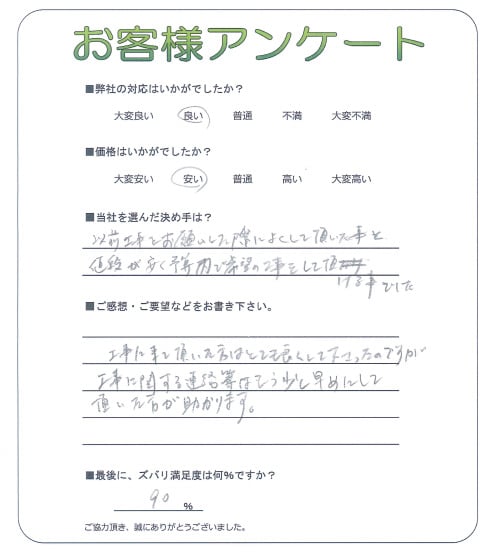 お客様アンケート
■弊社の対応はいかがでしたか？
大変良い 良い 普通 不満 大変不満
■価格はいかがでしたか？
大変安い 安い 普通 高い 大変高い
■当社を選んだ決め手は？
以前工事をお願いした際によくして頂いた事と
値段が安く予算内で希望の工事をして頂
ける事でした
■ご感想・ご要望などをお書き下さい。
工事に来て頂いた方はとても良くして下さったのですが
工事に関する連絡等はもう少し早めにして
頂いた方が助かります。
■最後に、ズバリ満足度は何%ですか？
90 %
ご協力頂き、誠にありがとうございました。